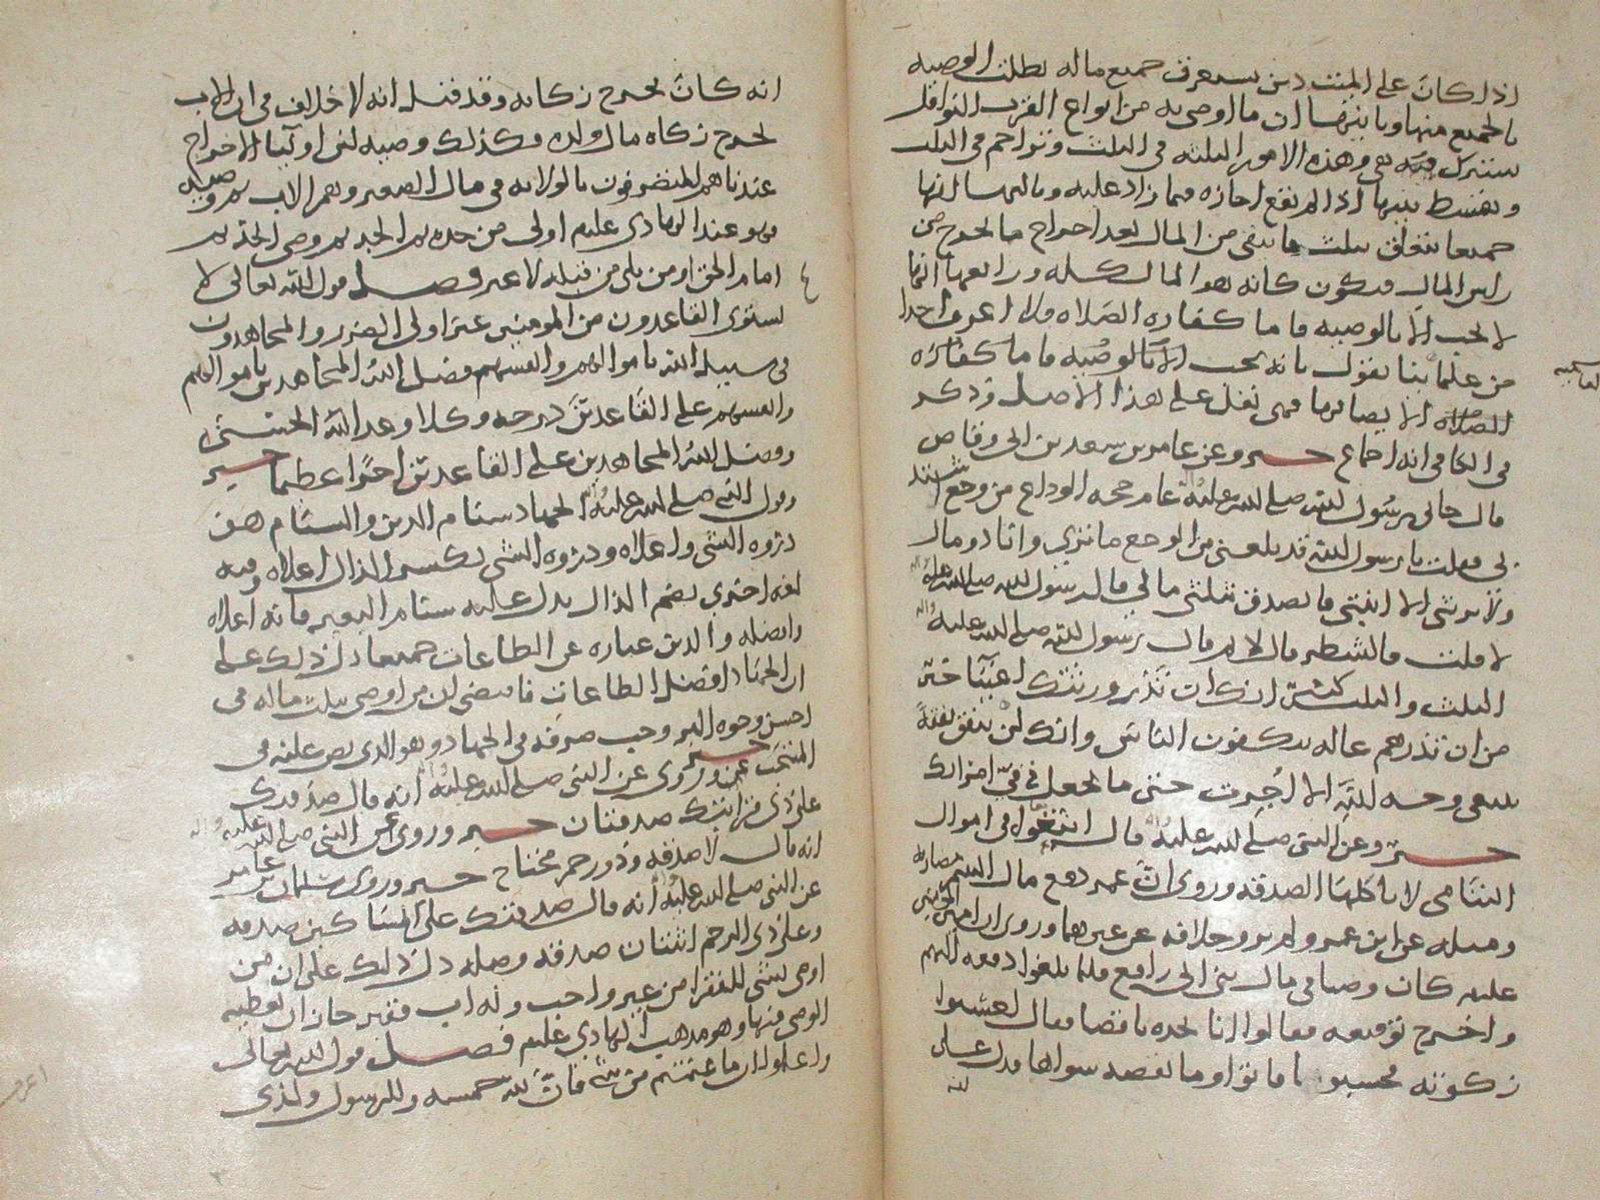 اذا كان على الميت دين يستغرق جميع ماله بطلت الوصيه
بالجميع منها وثانيها ان ما اوصى به من انواع القرب النوافل
يشترك فيه هي وهذه الامور الثلثه في الثلث وتزاحم في الثلث
ويقسط بينها اذا لم تقع اجازه فيما زاد عليه وثالثها انها
جميعا تتعلق بثلث ما يبقى من المال بعد اخراج ما يخرج من
راس المال فيكون كانه هو المال كله ورابعها انها
لا تجب الا بالوصيه فاما كفاره الصلاه فلا اعرف احدا
من علمائنا يقول بانه يجب الا بالوصيه فاما كفاره
الصلاه الا يصا بها فهي نفل على هذا الاصل وذكر
في الكافي انه اجماع خبر وعن عامر بن سعد بن ابي وقاص
قال جاني رسول الله صلى الله عليه واله عام حجه الوداع من وجع اشتد
بي فقلت يا رسول الله قد بلغ بي من الوجع ما ترى وانا ذو مال
ولا يرثني الا ابنتي فاتصدق بثلثي مالي قال رسول الله صلى الله عليه واله
لا قلت فالشطر قال لا ثم قال رسول الله صلى الله عليه واله
الثلث والثلث كثير انك ان تذر ورثتك اغنيا خير
من ان تذرهم عاله يتكففون الناس وانك لن تنفق نفقة
تبتغي وجه الله الا اجرت حتى ما تجعل في في امراتك
خبر وعن النبي صلى الله عليه واله قال ابتغوا في اموال
اليتامى لا تاكلها الصدقه وروي ان عمر دفع مال اليتيم مضاربه
ومثله عن ابن عمر ولم يرو خلافه عن غيرهما وروي ان امير المؤمنين
عليه كان وصيا في مال بني ابي رافع فلما بلغوا دفعه اليهم
واخرج فقالوا انا نجده ناقصا فقال احسبوا
زكوته فحسبوا فاذا هو وما نقصه سوا فدل على
انه كان يخرج زكاته وقد قيل انه لا خلاف في ان الاب
يخرج زكاه مال ولده وكذلك وصيه لنا الاخراج
عندنا هم المتصرفون بالولايه في مال الصغير وهم الاب ثم وصيه
فهو عند الهادي عليه اولى من جده ثم الجد ثم وصي الجد ثم
امام الحق او من يلي من قبله لا غير فصل قول الله تعالى لا
يستوي القاعدون من المومنين غير اولي الضرر والمجاهدون
في سبيل الله باموالهم وانفسهم فضل الله المجاهدين باموالهم
وانفسهم على القاعدين درجه وكلا وعد الله الحسنى
وفضل الله المجاهدين على القاعدين اجرا عظيما خبر
وقول النبي صلى الله عليه واله الجهاد سنام الدين والسنام هو
ذروه الشي واعلاه وذروه الشي بكسر الذال اعلاه وفيه
لغه اخرى بضم الذال يدل عليه سنام البعير فانه اعلاه
وافضله والدين عباره عن الطاعات جميعا دل ذلك على
ان الجهاد افضل الطاعات فاقتضى ان من اوصى بثلث ماله في
احسن وجوه البر وجب صرفه في الجهاد وهو الذي نص عليه في
المنتخب خبر وروي عن النبي صلى الله عليه واله انه قال صدقتك
على ذي قرابتك صدقتان خبر وروي عن النبي صلى الله عليه واله
انه قال لا صدقه وذو رحم محتاج خبر وروى سلمان بن عامر
عن النبي صلى الله عليه واله انه قال صدقتك على المساكين صدقه
وعلى ذي الرحم اثنتان صدقه وصله دل ذلك على ان من
اوصى بشي للفقرا من غير واجب وله اب فقير جاز ان يعطيه
الوصي منها وهو مذهب الهادي عليه فصل قول الله تعالى
واعلموا ان ما غنمتم من شي فان لله خمسه وللرسول ولذي